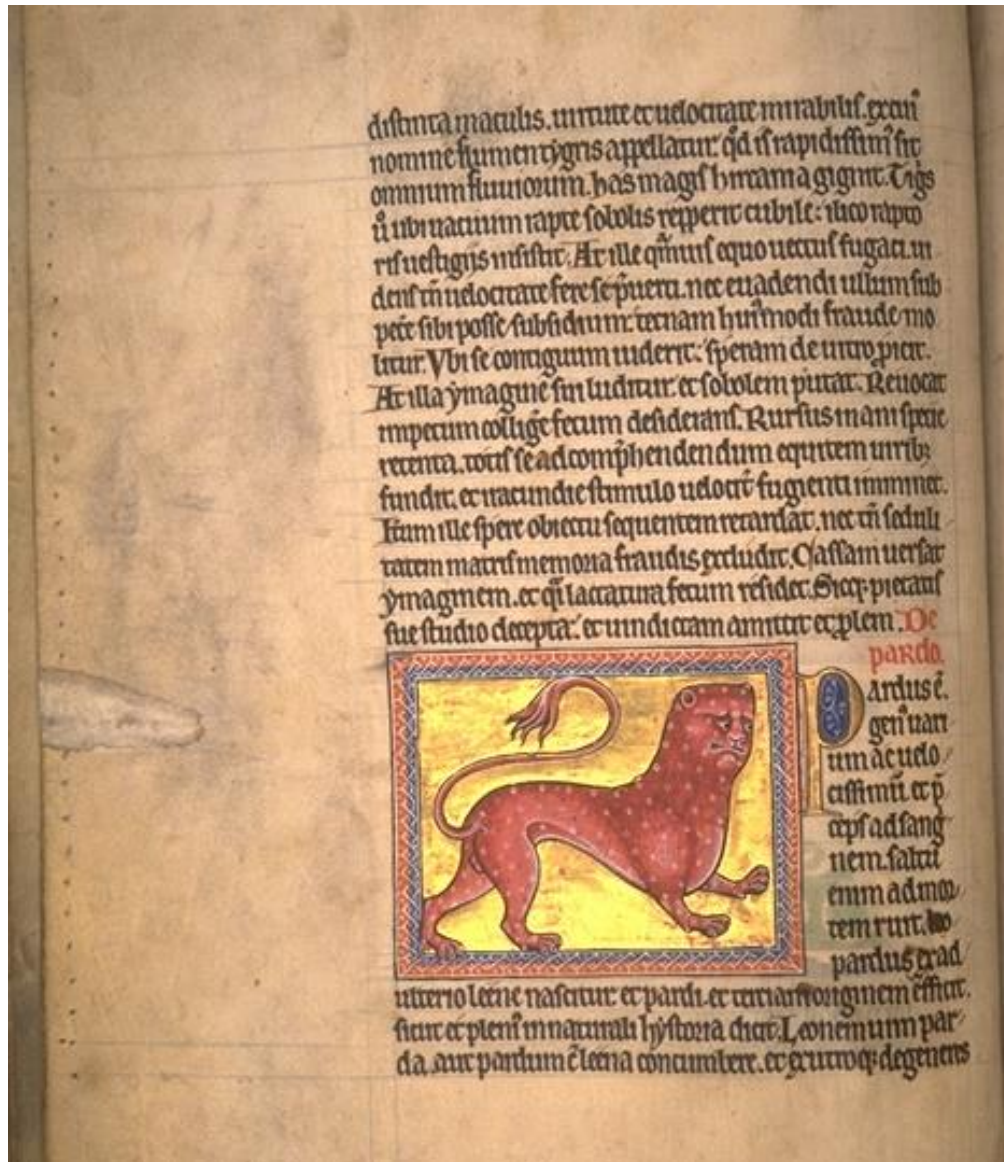 distincta maculis. uirtute et uelocitate mirabilis. ex cui᾽
nomine flumen tygris appellatur. qd̄ is rapidissim᾽ sit
omnium fluuiorum. has magis hircania gignit. Tig̾s
ů ubi uacuum rapte sobolis repperit cubile: ilico rapto
ris uestigiis insistit. At ille quāuis equo uectus fugaci. ui
dens tn̄ uelocitate fere se p̄uerti. nec euadendi ullum sub
petẽ sibi posse subsidium: tecnam hui᾽modi fraude mo
litur. Vbi se contiguum uiderit: speram de uitro ꝓicit.
At illa ymagine sui luditur. et sobolem putat. Reuocat
impetum collig̃e fetum desiderans. Rursus inani specie
retenta. totis se ad comp̄hendendum equitem uirib;
fundit. et iracundie stimulo uelocit̾ fugienti imminet.
Itum ille spere obiectu sequentem retardat. nec tn̄ seduli
tatem matris memoria fraudis excludit. Cassam uersat
ymaginem. et q̇͂ lactatura fetum residet. Sicq; pietatis
sue studio decepta. et uindictam amittit et ꝓlem. De
pardo.
Pardus ē.
gen᾽ uari
um ac uelo
cissimū. et p̄
ceps ad sang̾
nem. saltū
enim ad mor
tem ruit. leo
pardus ex ad
ulterio leene nascitur et pardi. et tertiam originem efficit.
sicut et pleni᾽ in naturali hystoria dicit. Leonem cum par
da. aut pardum c̄ leena concumbere. et ex utroq; degeneres